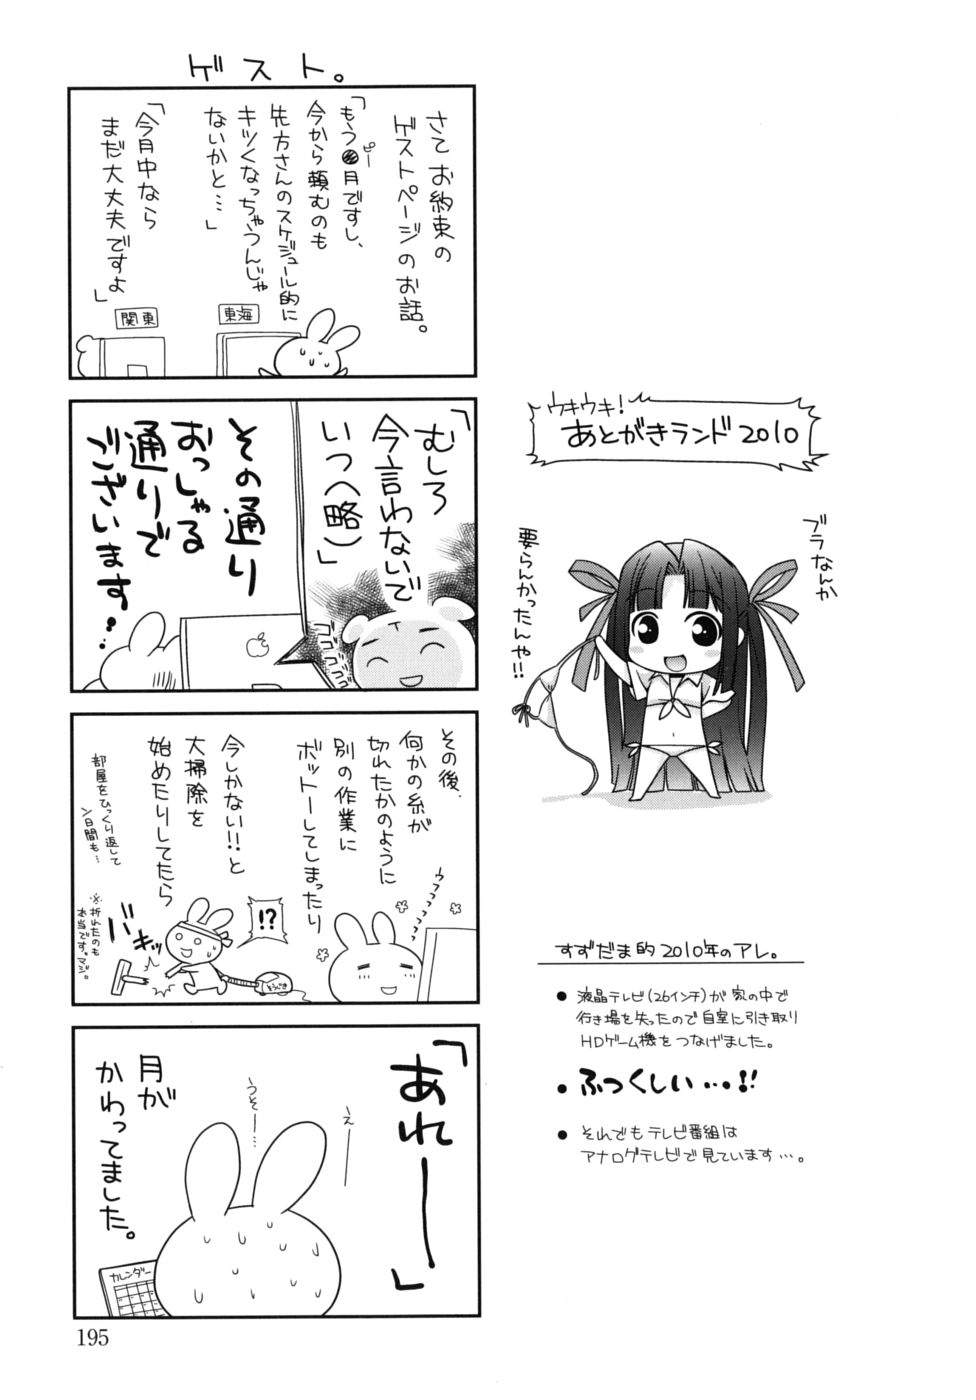 ウキウキ!
あとがきランド2010
ブラなんか
要らんかったんや!!
すずだま的2010年のアレ。
●液晶テレビ(26インチ)が家の中で
行き場を失ったので自室に引き取り
HDゲーム機をつなげました。
●ふつくしい…!!
●それでもテレビ番組は
アナログテレビで見ています…。
ゲスト。
さてお約束の
ゲストページのお話。
「もう●月ですし、
ピー
今から頼むのも
先方さんのスケジュール的に
キツくなっちゃうんじゃ
ないかと…」
「今月中なら
まだ大丈夫ですよ」
東海
関東
「むしろ
今言わないで
いつ(略)」
ゴゴゴゴ
その通り
おっしゃる
通りで
ございます!
その後、
何かの糸が
切れたかのように
別の作業に
ボットーしてしまったり
ウフフフフフ
今しかない!!と
大掃除を
始めたりしてたら
部屋をひっくり返して
ン日間も…
!?
バキッ
そうじき
※折れたのも
本当です。マジ。
「あれー」
えー
うそー…
月が
かわってました。
カレンダー
195